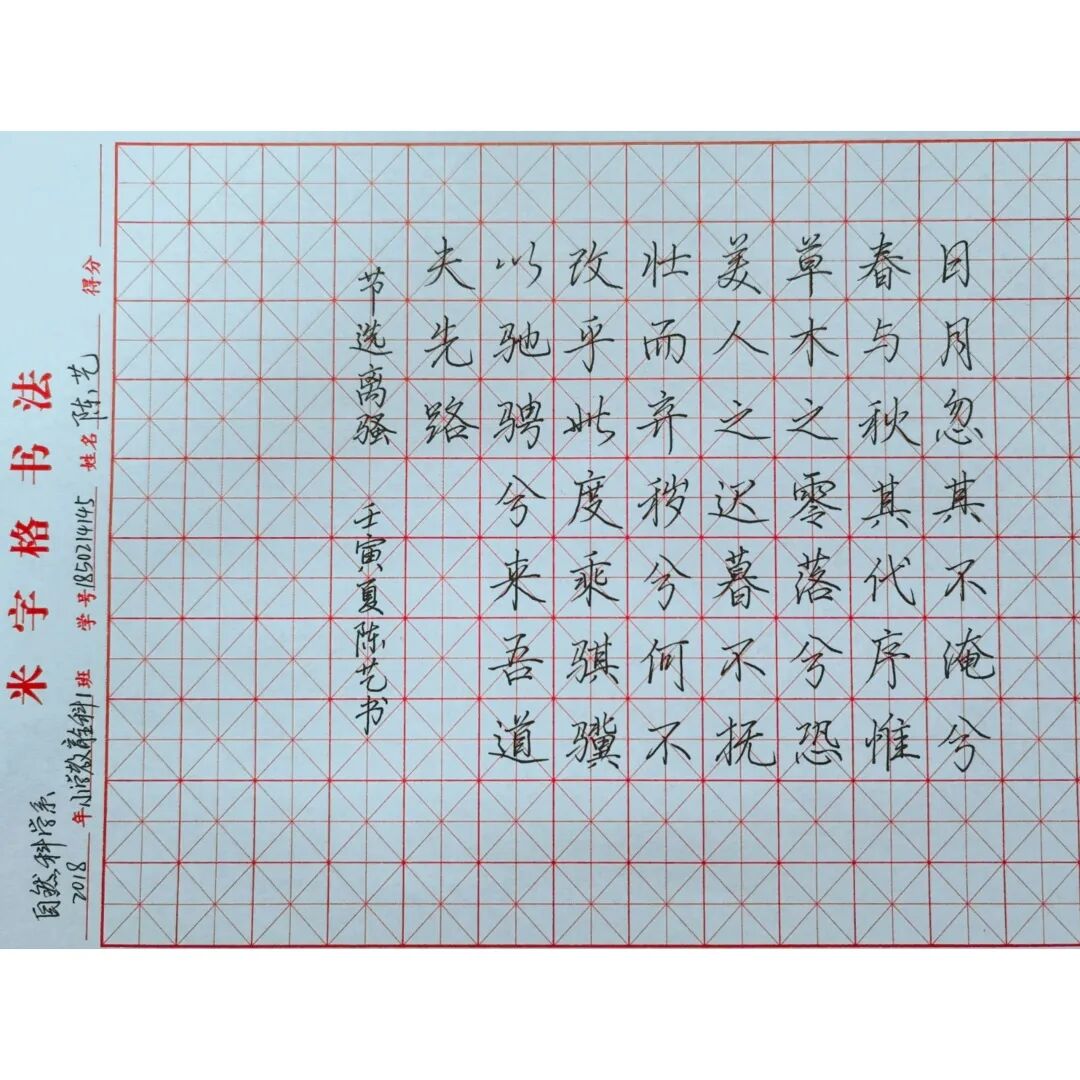 米字格书法
自然科学系
2018年小学教育全科1班 学号1850214145 姓名陈艺 得分
日月忽其不淹兮
春与秋其代序惟
草木之零落兮恐
美人之迟暮不抚
壮而弃秽兮何不
改乎此度乘骐骥
以驰骋兮来吾道
夫先路
节选离骚 壬寅夏陈艺书